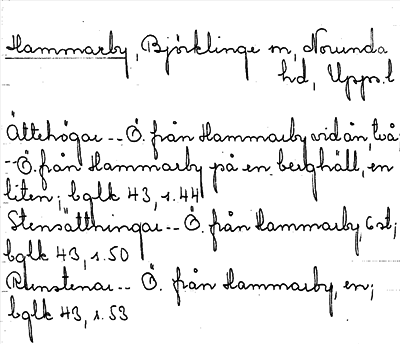 Hammarby, Björklinge sn, Norunda
hd, Upps. l
Ättehögar -- Ö. från Hammarby vid ån, två;
-"- Ö. från Hammarby på en berghäll, en
liten; bglk 43, s. 44
Stensättningar -- Ö. från Hammarby, 6 st;
bglk 43, s. 50
Runstenar -- Ö. från Hammarby, en;
bglk 43, s. 53